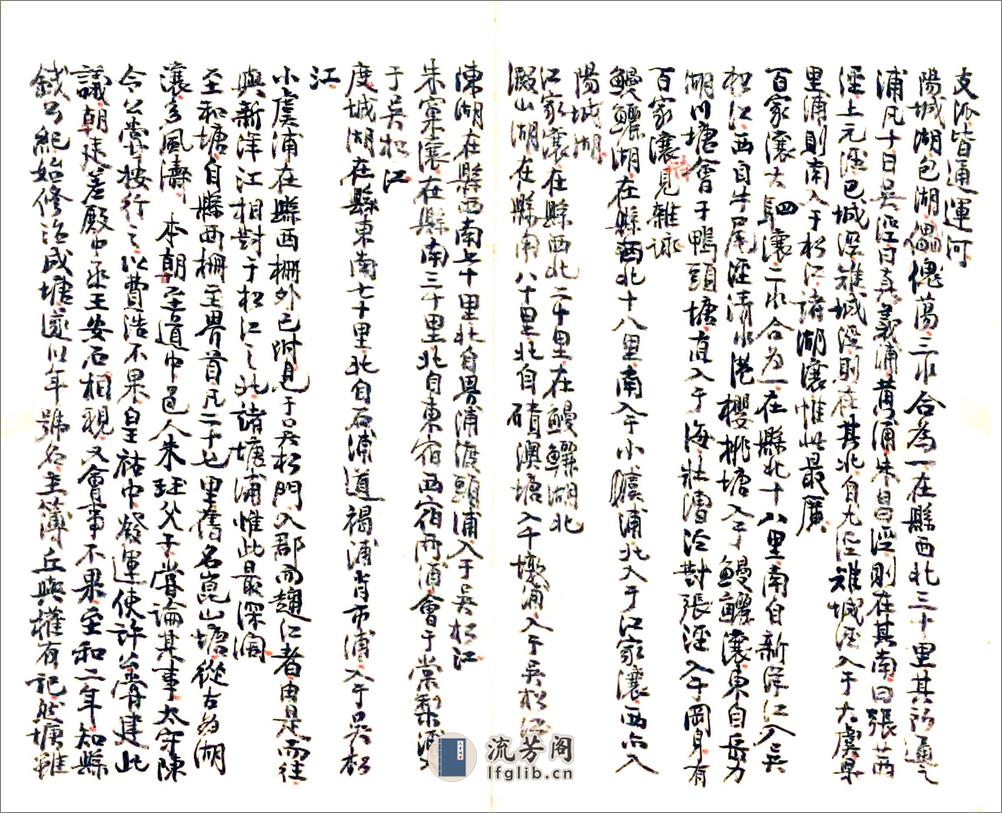 支派皆通運河
陽城湖包湖傀儡蕩三水合為一在縣西北三十里其所通之
浦凡十曰吳涇曰真義浦黄涌朱昌涇則在其南曰張葑
涇上元涇巴城涇雉城涇則在其北自九涇雉城涇入于大虞
里浦則南入于松江諸湖瀼惟此最廣
百家瀼大駟瀼二水合為一在縣北十八里南自新洋江入吳
松江西自牛尾涇清水港櫻桃塘入于鰻鱺瀼東自岳力
湖川塘會于鴨頭塘直入于海漕涇對張涇入于岡身有
百家瀼見雜詠
鰻鱺湖在縣西北十八里南入于小虞浦北入于江家瀼西亦入
陽城湖
江家瀼在縣西北二十里在鰻鱺湖北
澱山湖在縣南八十里北自磧澳塘入千墩浦入于吳松江
陳湖在縣西南七十里北自界浦渡頭浦入于吳松江
朱寞瀼在縣南三十里北自東宿西宿兩浦會于棠梨涇入
于吳松江
度城湖在縣東南七十里北自石浦道褐浦肖市浦入于吳松
江
小虞浦在縣西柵外已附見于吳松門入郡而趨江者由是而往
與新洋江相對于松江之北諸塘浦惟此最深闊
至和塘自縣西柵至界首凡二十七里舊名崑山塘從古為湖
瀼多風濤 本朝至道中邑人朱珏父子嘗論其事太守陳
令公嘗按行之以費浩不果皇祐中發運使許公嘗建此
議朝廷差殿中丞王安石相視又會事不果至和二年知縣
錢公紀始修治成塘遂以年號名主簿丘與權有記然塘雖
流芳阁
lfglib.cn